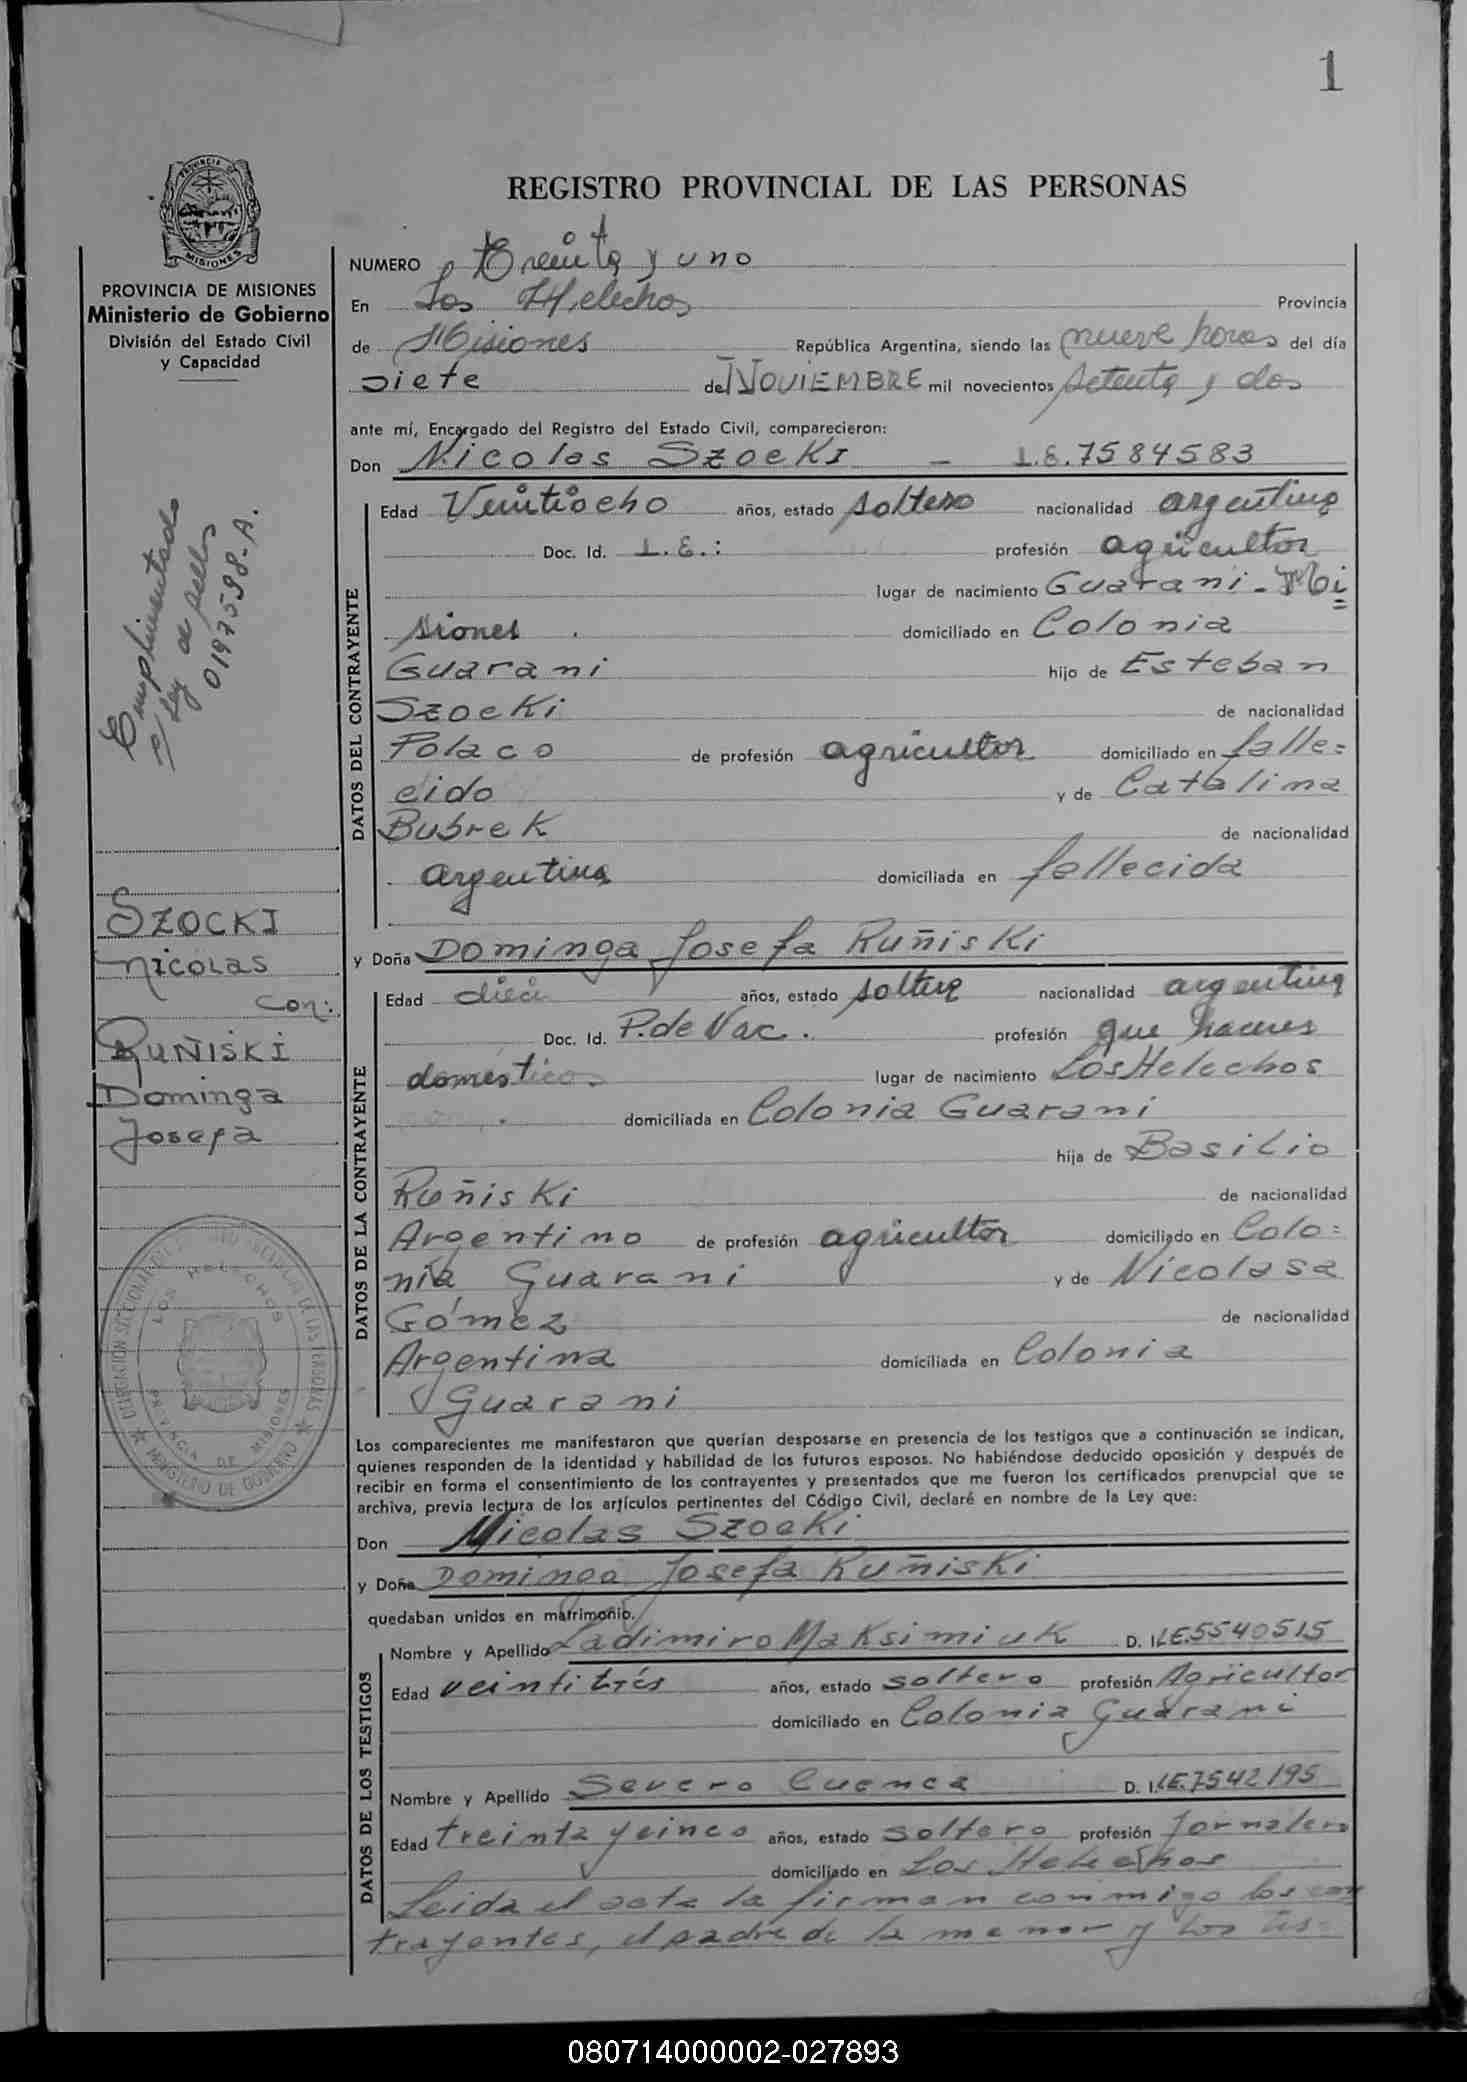 1
REGISTRO PROVINCIAL DE LAS PERSONAS
PROVINCIA DE MISIONES
Ministerio de Gobierno
División del Estado Civil
y Capacidad
Cumplimentado
c/ Ley de sellos
0197598-A.
SZOCKI
NICOLAS
con:
RUÑISKI
Dominga
Josefa
NUMERO Treinta y uno
En Los Helechos Provincia
de Misiones República Argentina, siendo las nueve horas del día
siete de NOVIEMBRE mil novecientos setenta y dos
ante mí, Encargado del Registro del Estado Civil, comparecieron:
Don Nicolas Szocki - L.E. 7584583
DATOS DEL CONTRAYENTE
Edad Veintiocho años, estado soltero nacionalidad argentina
Doc. Id. L.E.: profesión agricultor
lugar de nacimiento Guarani - Mi
siones. domiciliado en Colonia
Guarani hijo de Esteban
Szocki de nacionalidad
Polaco de profesión agricultor domiciliado en falle=
cido y de Catalina
Bubrek de nacionalidad
argentina domiciliada en fallecida
y Doña Dominga Josefa Ruñiski
DATOS DE LA CONTRAYENTE
Edad años, estado soltera nacionalidad argentina
Doc. Id. P. de Nac. profesión que haceres
domésticos lugar de nacimiento Los Helechos
domiciliada en Colonia Guarani
hija de Basilio
Ruñiski de nacionalidad
Argentino de profesión agricultor domiciliado en Colo=
nia Guarani y de Nicolasa
Gómez de nacionalidad
Argentina domiciliada en Colonia
Guarani
Los comparecientes me manifestaron que querían desposarse en presencia de los testigos que a continuación se indican,
quienes responden de la identidad y habilidad de los futuros esposos. No habiéndose deducido oposición y después de
recibir en forma el consentimiento de los contrayentes y presentados que me fueron los certificados prenupcial que se
archiva, previa lectura de los artículos pertinentes del Código Civil, declaré en nombre de la Ley que:
Don Nicolas Szocki
y Doña Dominga Josefa Ruñiski
quedaban unidos en matrimonio.
DATOS DE LOS TESTIGOS
Nombre y Apellido Ladimiro Maksimiuk D. I. L.E. 5540515
Edad veintitrés años, estado soltero profesión Agricultor
domiciliado en Colonia Guarani
Nombre y Apellido Severo Cuenca D. I. L.E. 7542195
Edad treinta y cinco años, estado soltero profesión Jornalero
domiciliado en Los Helechos
Leida el acta la firman conmigo los con
trayentes, el padre de la menor y los tes=
LOS HELECHOS
PROVINCIA DE MISIONES
MINISTERIO DE GOBIERNO
080714000002-027893